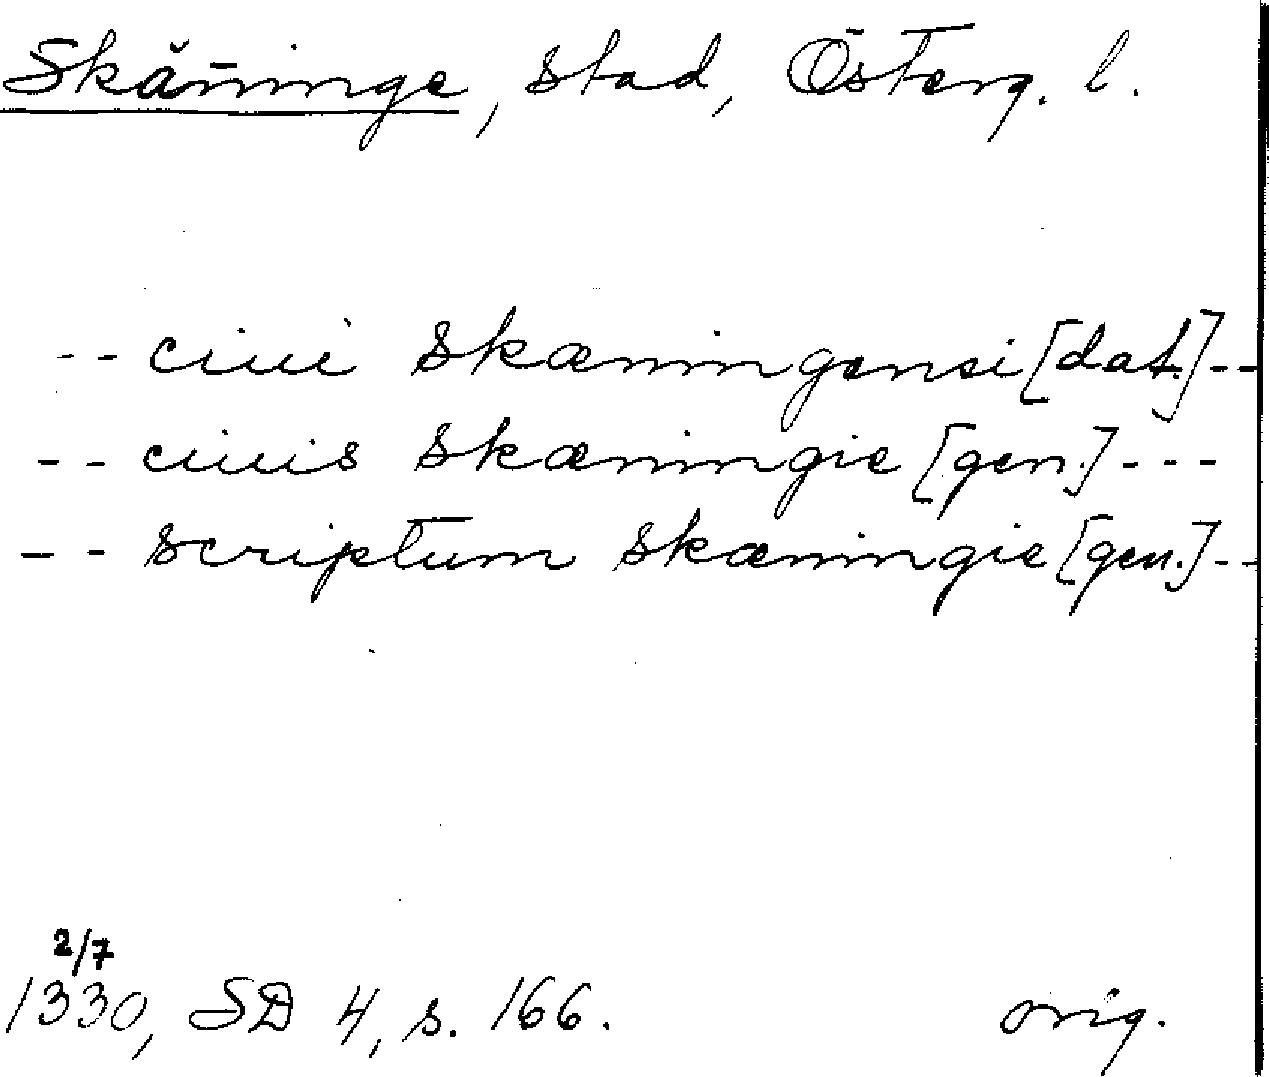 Skänninge, stad, Österg. l.
-- ciui skæningensi [dat.] --
-- ciuis skæningie [gen.] ---
-- scriptum skæningie [gen.] --
2/7
1330, SD 4, s. 166. orig.